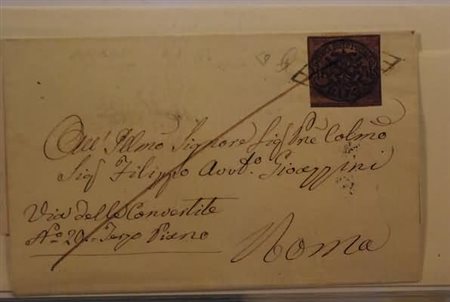 All' Illmo Signore Sig Pne Colmo
Sig Filippo Avvto
Via delle Convertite
No 20. Terzo Piano
Roma